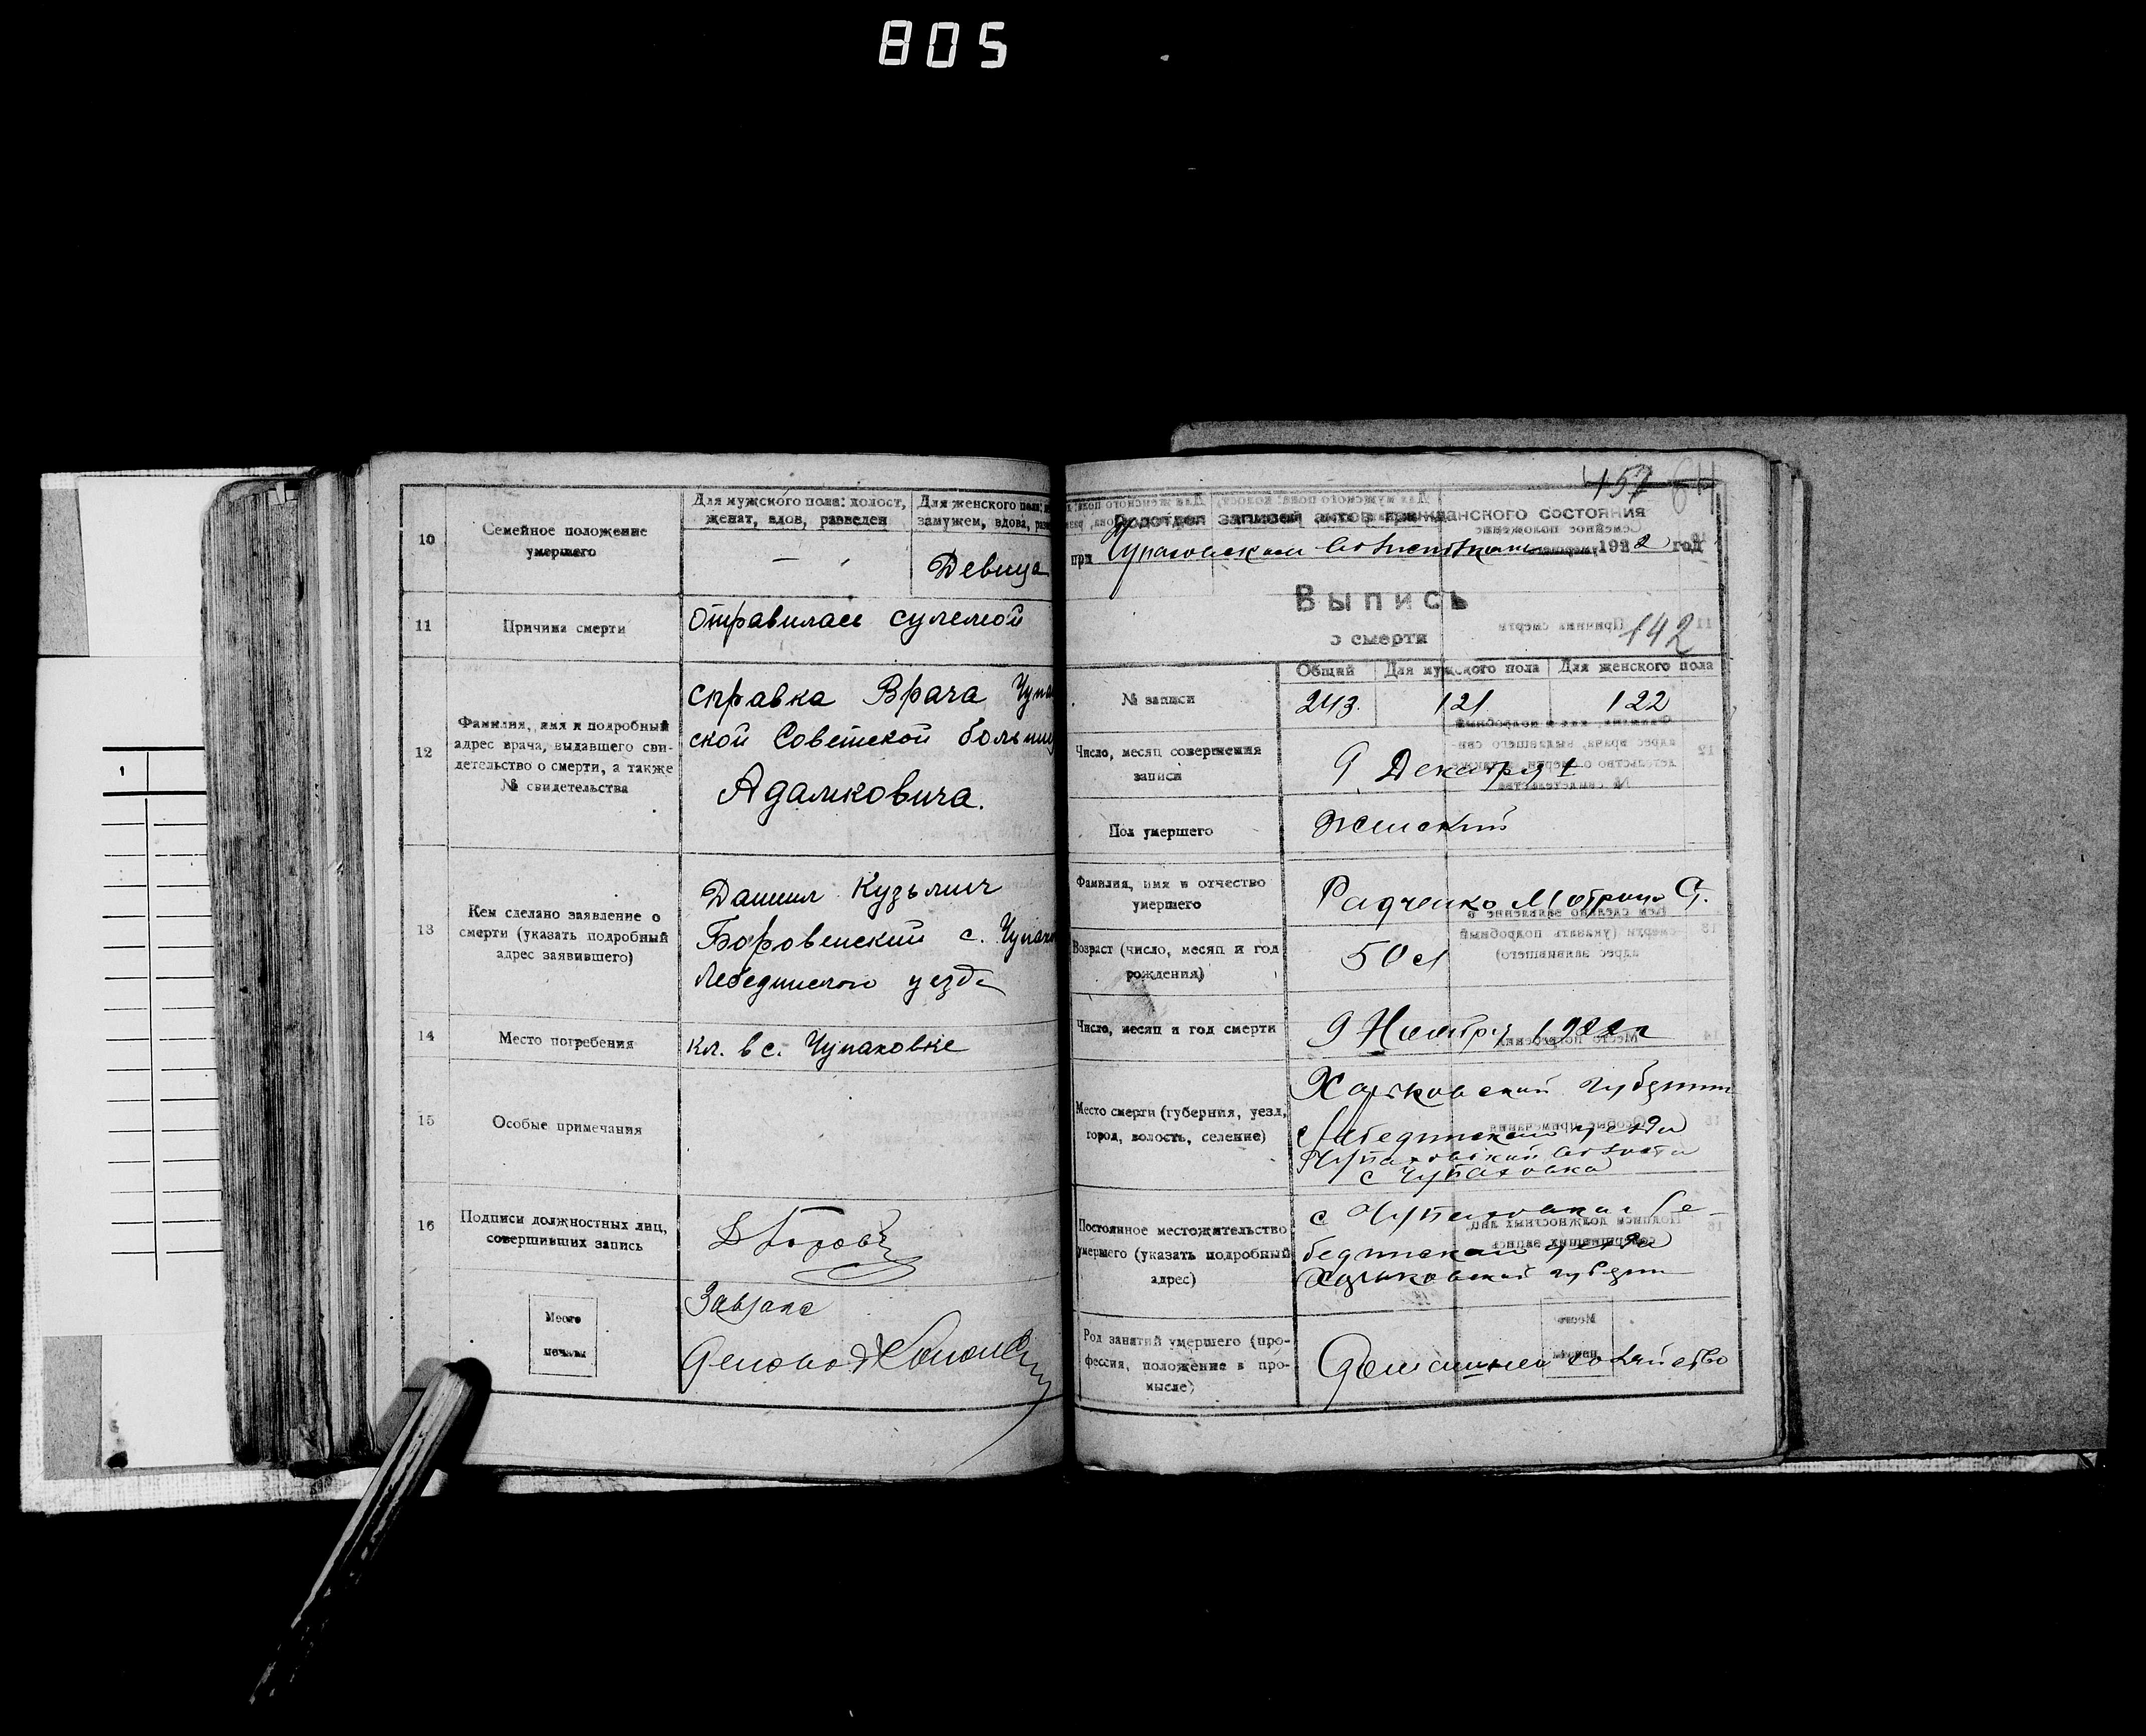 805
10
Семейное положение
умершего
Для мужского пола: холост,
женат, вдов, разведен
Для женского пола:
замужем, вдова,
—
Девица
11
Причина смерти
Отравилась сулемой
12
Фамилия, имя и подробный
адрес врача, выдавшего сви-
детельство о смерти, а также
№ свидетельства
справка Врача
ской Советской
Адамковича.
13
Кем сделано заявление о
смерти (указать подробный
адрес заявившего)
Даниил Кузьмич
Боровенский с.
Лебединского уезда
14
Место погребения
кл. в с. Чупаховке
15
Особые примечания
16
Подписи должностных лиц,
совершивших запись
Завзагс
Место
печати
1
157 64
Подотдел записей актов гражданского состояния
при 1922 год
Выпись
о смерти
142
№ записи
Общий
Для мужского пола
Для женского пола
243.
121
122
Число, месяц совершения
записи
9 Декабря
Пол умершего
Женский
Фамилия, имя и отчество
умершего
Радченко Мотрина С.
Возраст (число, месяц и год
рождения)
50 л
Число, месяц и год смерти
9 1922 г
Место смерти (губерния, уезд,
город, волость, селение)
Харьковский губернии
Лебединского уезда
Чупаховской волости
с Чупаховка
Постоянное местожительство
умершего (указать подробный
адрес)
с Чупаховка Ле-
бединского уезда
Харьковской губерни
Род занятий умершего (про-
фессия, положение в про-
мысле)
Домашнее хозяйство